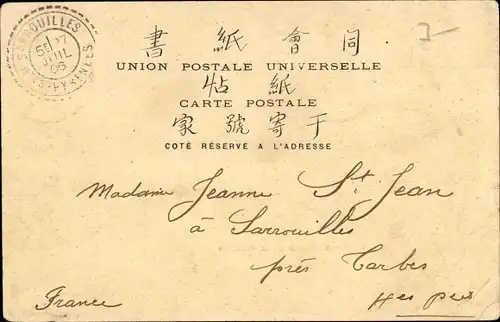 SARROUILLES
27
JUIL
06
HTES-PYRÉNÉES
書 紙 會 同
UNION POSTALE UNIVERSELLE
帖 紙
CARTE POSTALE
家 號 寄 于
COTÉ RÉSERVÉ A L'ADRESSE
Madame Jeanne St. Jean
à Sarrouilles
près Tarbes
France
Htes Pyr